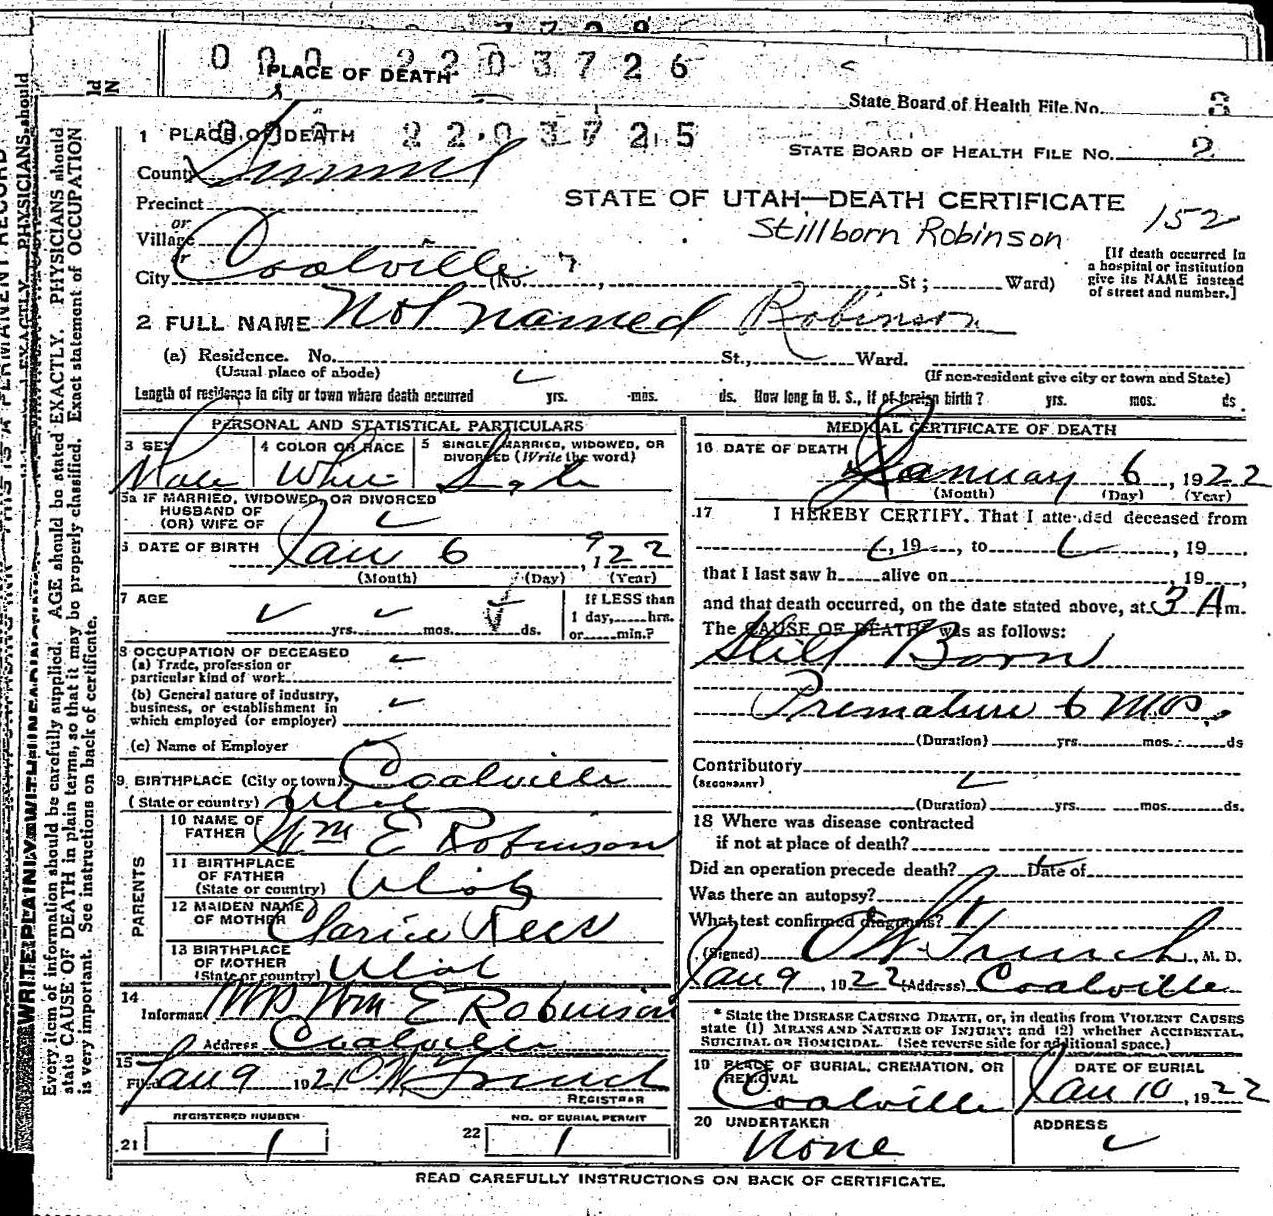 0 0 0 2 2 0 3 7 2 6
PLACE OF DEATH
State Board of Health File No. 3
0 0 0 2 2 0 3 7 2 5
1 PLACE OF DEATH
STATE BOARD OF HEALTH FILE NO. 2
County Summit
STATE OF UTAH—DEATH CERTIFICATE 152
Precinct
or
Stillborn Robinson
Village
or
City Coalville (No. , St ; Ward)
[If death occurred in
a hospital or institution
give its NAME instead
of street and number.]
2 FULL NAME Not named Robinson
(a) Residence. No. St., Ward.
(Usual place of abode) (If non-resident give city or town and State)
Length of residence in city or town where death occurred yrs. mos. ds. How long in U. S., if of foreign birth? yrs. mos. ds.
PERSONAL AND STATISTICAL PARTICULARS
3 SEX 4 COLOR OR RACE 5 SINGLE, MARRIED, WIDOWED, OR
DIVORCED (Write the word)
Male White Single
5a IF MARRIED, WIDOWED, OR DIVORCED
HUSBAND OF
(OR) WIFE OF
6 DATE OF BIRTH Jan 6, 1922
(Month) (Day) (Year)
7 AGE
If LESS than
1 day, hrs.
yrs. mos. ds. or min.?
8 OCCUPATION OF DECEASED
(a) Trade, profession or
particular kind of work
(b) General nature of industry,
business, or establishment in
which employed (or employer)
(c) Name of Employer
9. BIRTHPLACE (City or town) Coalville
(State or country) Utah
PARENTS
10 NAME OF
FATHER Wm E Robinson
11 BIRTHPLACE
OF FATHER
(State or country) Utah
12 MAIDEN NAME
OF MOTHER Clarice Rees
13 BIRTHPLACE
OF MOTHER
(State or country) Utah
14
Informant Mrs Wm E Robinson
Address Coalville
15
Filed Jan 9 192 O W French
REGISTRAR
REGISTERED NUMBER NO. OF BURIAL PERMIT
21 1 22 1
MEDICAL CERTIFICATE OF DEATH
16 DATE OF DEATH
January 6, 1922
(Month) (Day) (Year)
17 I HEREBY CERTIFY, That I attended deceased from
, 19 , to , 19 ,
that I last saw h alive on , 19 ,
and that death occurred, on the date stated above, at 3 A m.
The CAUSE OF DEATH* was as follows:
Still Born
Premature 6 Mos.
(Duration) yrs. mos. ds
Contributory
(SECONDARY)
(Duration) yrs. mos. ds.
18 Where was disease contracted
if not at place of death?
Did an operation precede death? Date of
Was there an autopsy?
What test confirmed diagnosis?
(Signed) O W French, M. D.
Jan 9, 1922 (Address) Coalville
* State the DISEASE CAUSING DEATH, or, in deaths from VIOLENT CAUSES
state (1) MEANS AND NATURE OF INJURY; and (2) whether ACCIDENTAL,
SUICIDAL OR HOMICIDAL. (See reverse side for additional space.)
19 PLACE OF BURIAL, CREMATION, OR
REMOVAL
DATE OF BURIAL
Coalville Jan 10, 1922
20 UNDERTAKER ADDRESS
None
READ CAREFULLY INSTRUCTIONS ON BACK OF CERTIFICATE.
Every item of information should be carefully supplied. AGE should be stated EXACTLY. PHYSICIANS should
state CAUSE OF DEATH in plain terms, so that it may be properly classified. Exact statement of OCCUPATION
is very important. See instructions on back of certificate.